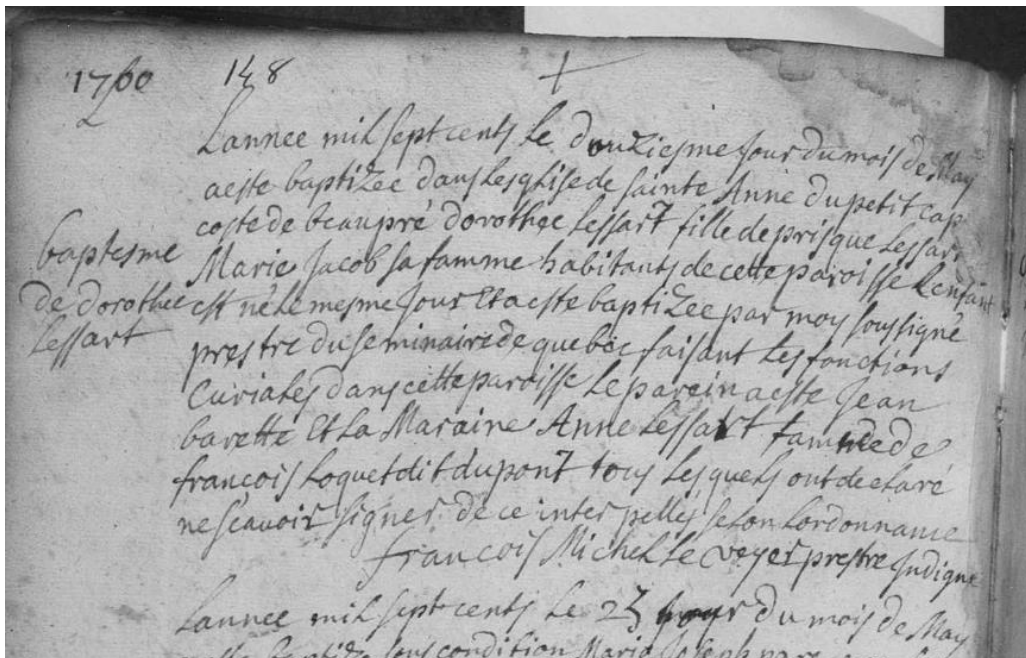 1700 148
Lannee mil sept cents le douziesme jour du mois de May
a este baptizee dans lesglise de sainte Anne du petit cap
coste de beaupré dorothee Lessart fille de prisque Lessart
Marie Jacob sa famme habitants de cette paroisse Lenfant
baptesme
de dorothee
Lessart
est né le mesme jour Et a este baptizee par moy soussigné
prestre du seminaire de quebec faisant les fonctions
Curiales dans cette paroisse Le parein a este Jean
barette Et La Maraine Anne Lessart famme de
francois Loquet dit dupont tous lesquels ont declaré
ne scavoir signer de ce interpellés selon Lordonnance
francois Michel Le Voyer prestre Indigne
Lannee mil sept cents le 23 jour du mois de May
baptize sous condition Marie Joseph